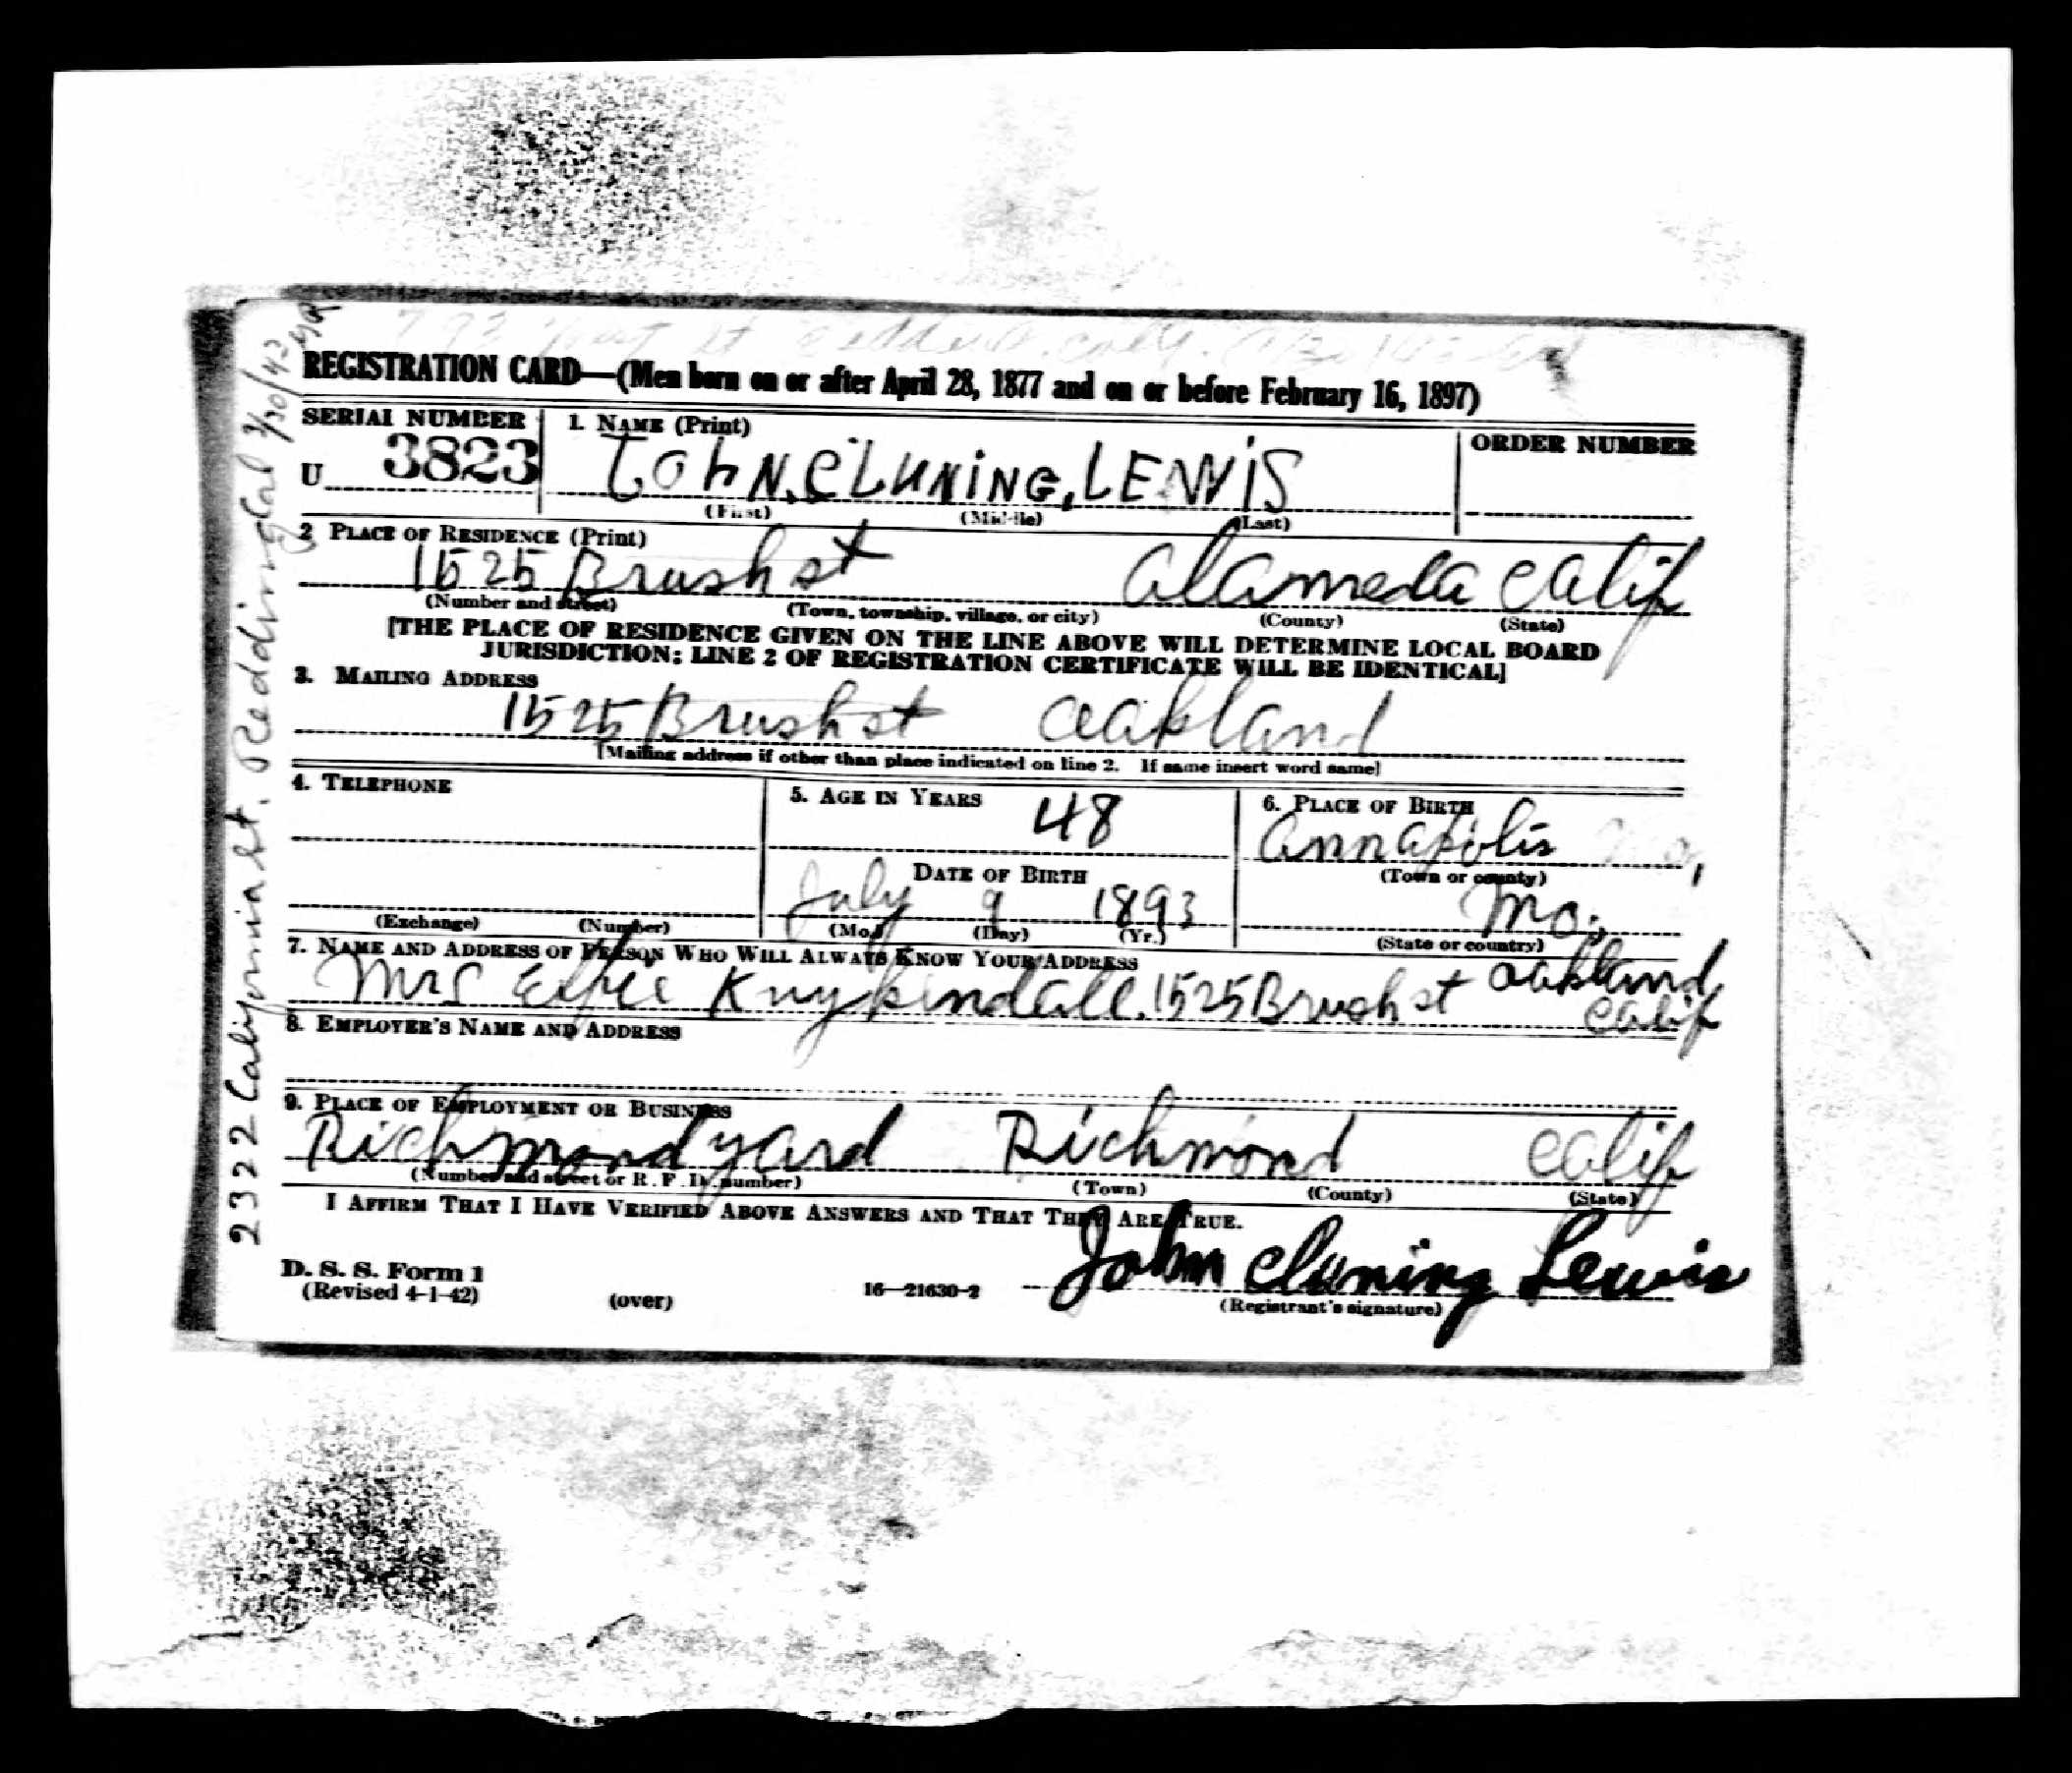 REGISTRATION CARD—(Men born on or after April 28, 1877 and on or before February 16, 1897)
SERIAL NUMBER
1. NAME (Print)
ORDER NUMBER
U 3823
JOHN, CLUNING, LEWIS
(First) (Middle) (Last)
2 PLACE OF RESIDENCE (Print)
1525 Brush st Alameda Calif
(Number and street) (Town, township, village, or city) (County) (State)
[THE PLACE OF RESIDENCE GIVEN ON THE LINE ABOVE WILL DETERMINE LOCAL BOARD
JURISDICTION; LINE 2 OF REGISTRATION CERTIFICATE WILL BE IDENTICAL]
3. MAILING ADDRESS
1525 Brush st Oakland
[Mailing address if other than place indicated on line 2. If same insert word same]
4. TELEPHONE
5. AGE IN YEARS
48
6. PLACE OF BIRTH
Annapolis
(Town or county)
DATE OF BIRTH
July 9 1893
Mo.
(Exchange) (Number)
(Mo.) (Day) (Yr.)
(State or country)
7. NAME AND ADDRESS OF PERSON WHO WILL ALWAYS KNOW YOUR ADDRESS
Mrs Effie Kuykindall. 1525 Brush st Oakland
Calif
8. EMPLOYER'S NAME AND ADDRESS
9. PLACE OF EMPLOYMENT OR BUSINESS
Richmond yard Richmond Calif
(Number and street or R. F. D. number) (Town) (County) (State)
I AFFIRM THAT I HAVE VERIFIED ABOVE ANSWERS AND THAT THEY ARE TRUE.
John Cluning Lewis
D. S. S. Form 1
(Revised 4-1-42) (over) 16—21630-2 (Registrant's signature)
2322 California St. Redding Cal